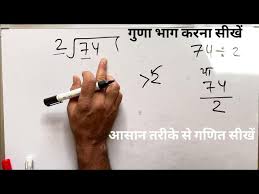 गुणा भाग करना सीखें
2√74
74÷2
>2
या
74
2
आसान तरीके से गणित सीखें